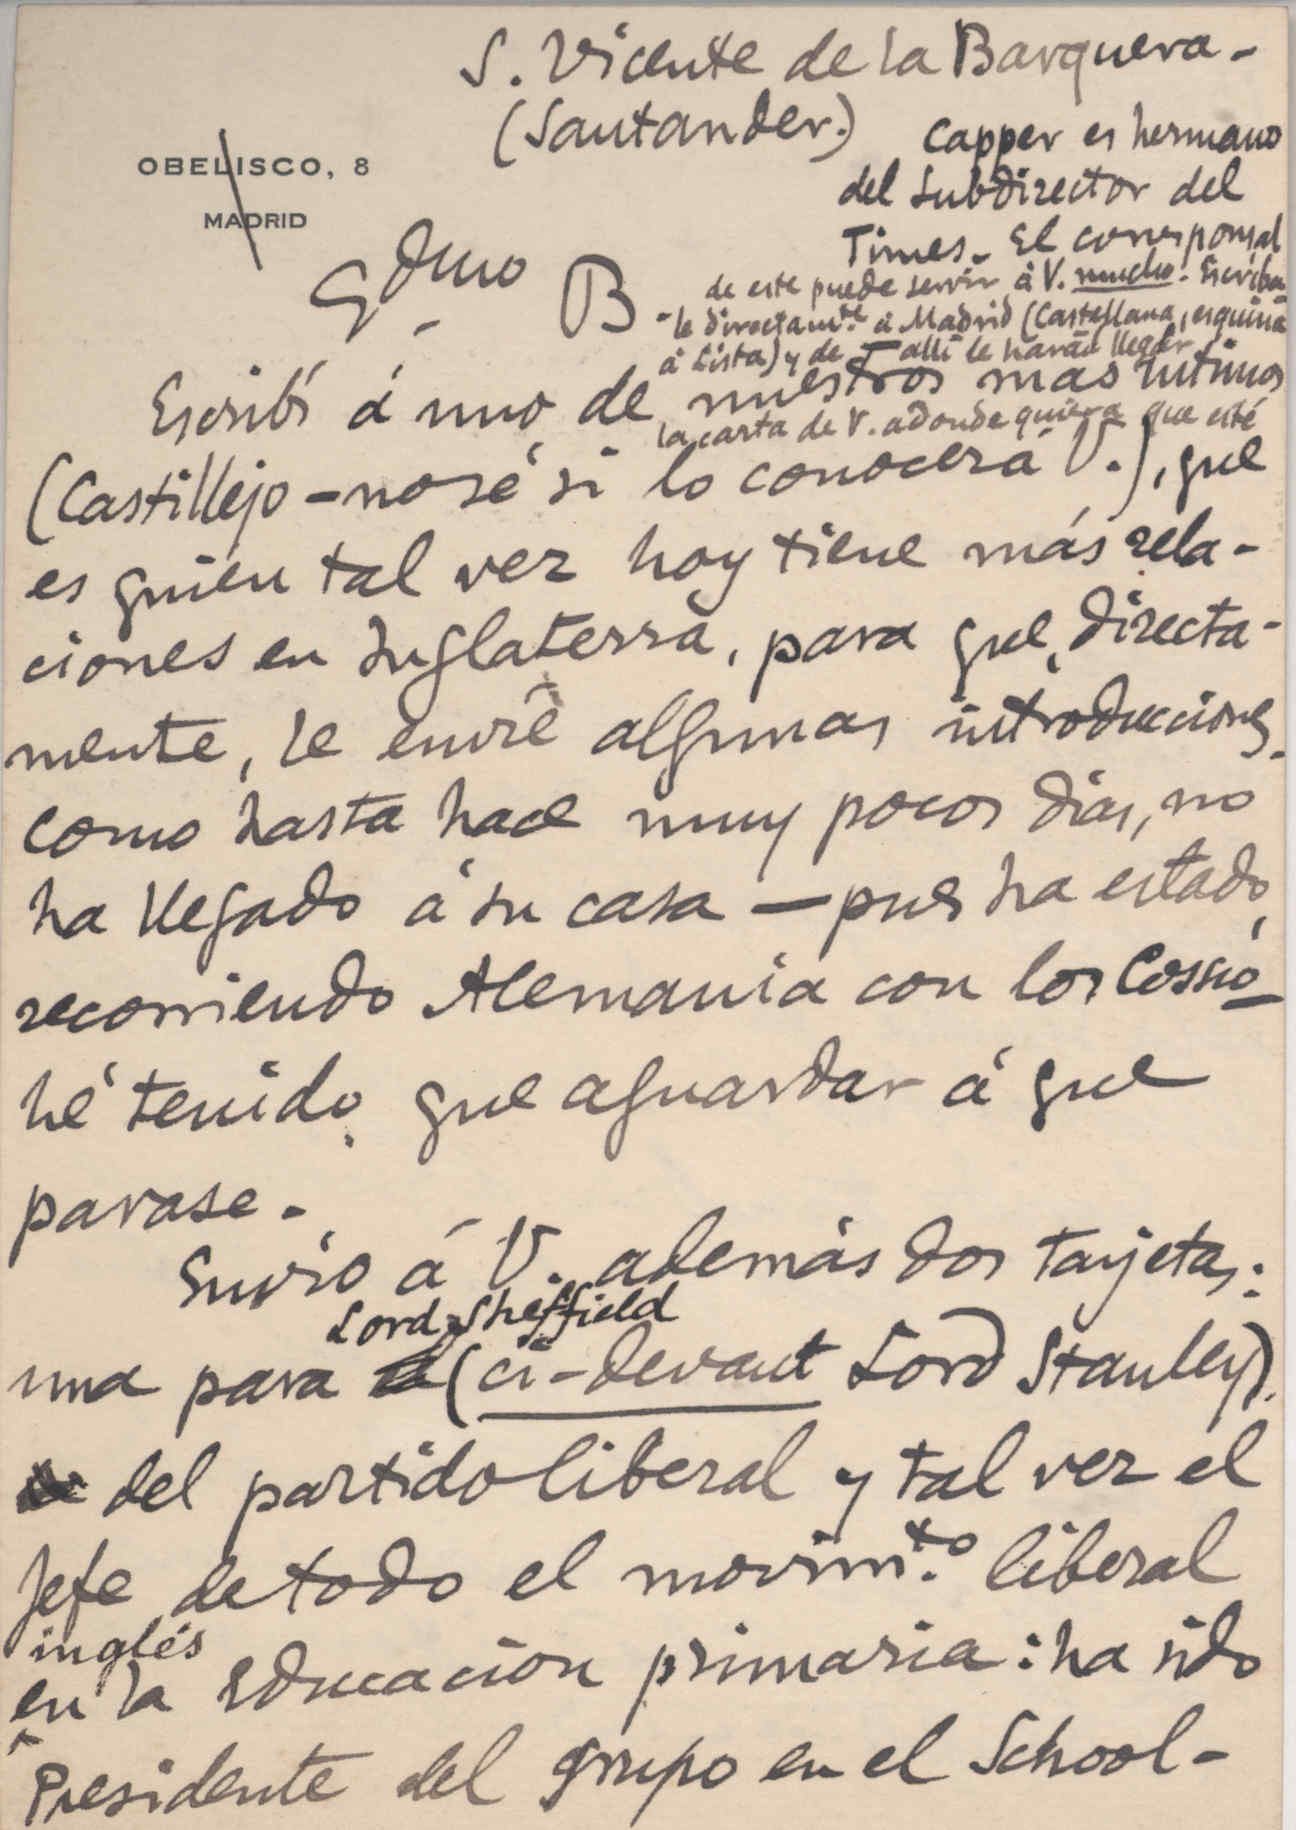 S. Vicente de la Barquera -
(Santander.)
OBELISCO, 8
MADRID
Capper es hermano
del Subdirector del
Times. El corresponsal
de este puede servir á V. mucho. Escriba-
-le directamte. á Madrid (Castellana, esquina
á Lista) y de allí le harán llegar
la carta de V. adonde quiera que esté
Qdmo B
Escribí á uno de nuestros más íntimos
(Castillejo - no sé si lo conocerá V.), que
es quien tal vez hoy tiene más rela-
ciones en Inglaterra, para que, directa-
mente, le envíe algunas introducciones.
Como hasta hace muy pocos días, no
ha llegado á su casa — pues ha estado
recorriendo Alemania con los Cossío -
hé tenido que aguardar á que
parase.
Envío á V. además dos tarjetas:
Lord Sheffield
una para (ci-devant Lord Stanley)
del partido liberal y tal vez el
Jefe de todo el movimto. liberal
inglés
en la educación primaria: ha sido
Presidente del grupo en el School-